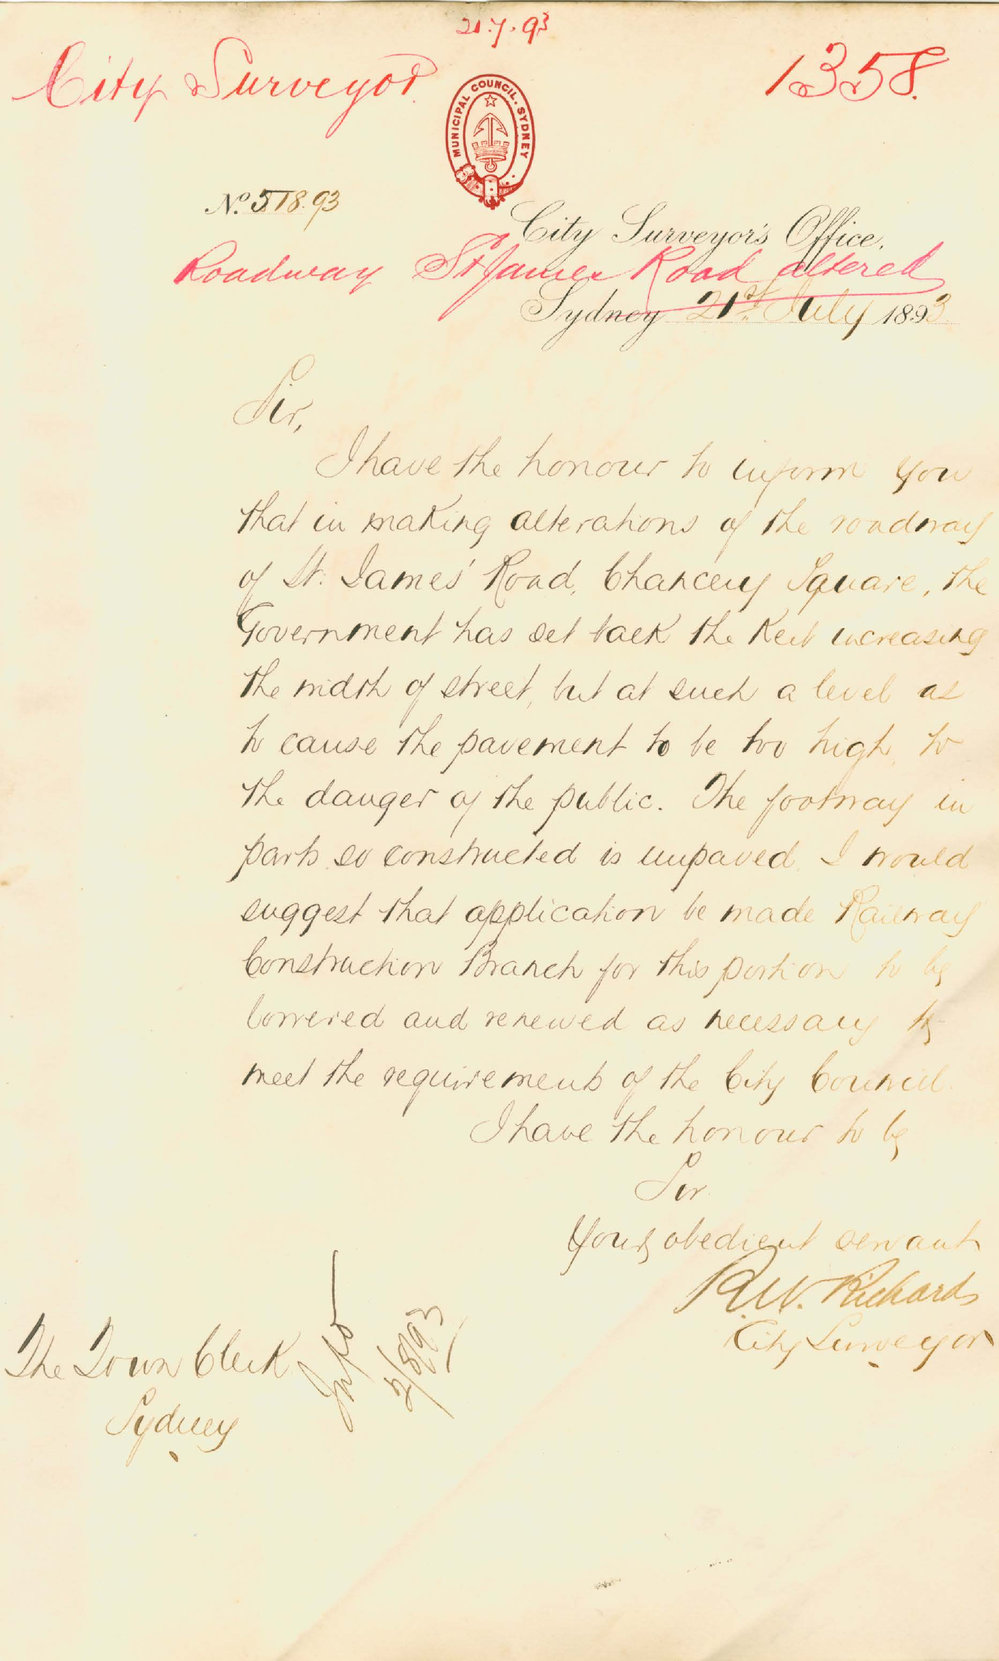 21.7.93
City Surveyor.
1358.
MUNICIPAL COUNCIL. SYDNEY
No. 518.93
City Surveyor's Office.
Roadway St James Road altered
Sydney 21st July 1893
Sir,
I have the honour to inform you
that in making alterations of the roadway
of St. James' Road, Chancery Square, the
Government has set back the Kerb increasing
the width of street, but at such a level as
to cause the pavement to be too high, to
the danger of the public. The footway in
parts so constructed is unpaved. I would
suggest that application be made Railway
Construction Branch for this portion to be
lowered and renewed as necessary to
meet the requirements of the City Council.
I have the honour to be
Sir
Your obedient servant
R.W. Richards
City Surveyor
The Town Clerk
Sydney
2/8/93